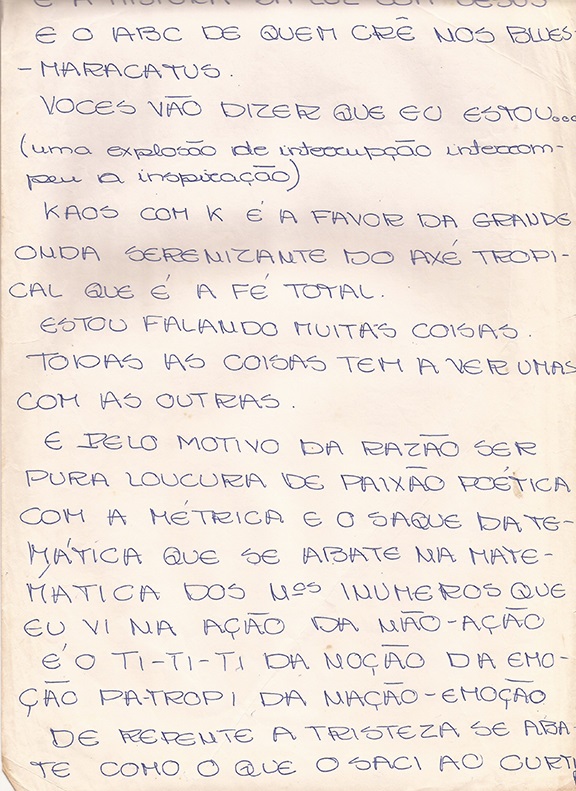 E A HISTÓRIA DA LUZ COM JESUS
E O ABC DE QUEM CRÊ NOS BLUES-
-MARACATUS.
VOCES VÃO DIZER QUE EU ESTOU...
(uma explosão de interrupção interrom-
peu a inspiração)
KAOS COM K É A FAVOR DA GRANDE
ONDA SERENIZANTE DO AXÉ TROPI-
CAL QUE É A FÉ TOTAL.
ESTOU FALANDO MUITAS COISAS.
TODAS AS COISAS TEM A VER UMAS
COM AS OUTRAS.
E PELO MOTIVO DA RAZÃO SER
PURA LOUCURA DE PAIXÃO POÉTICA
COM A MÉTRICA E O SAQUE DA TE-
MÁTICA QUE SE ABATE NA MATE-
MÁTICA DOS Nºs INUMEROS QUE
EU VI NA AÇÃO DA NÃO-AÇÃO
É O TI-TI-TI DA NOÇÃO DA EMO-
ÇÃO PA-TROPI DA NAÇÃO-EMOÇÃO
DE REPENTE A TRISTEZA SE ABA-
TE COMO O QUE O SACI AO CURTI